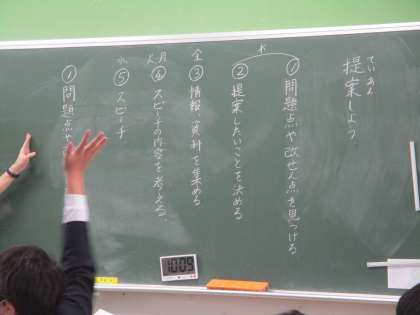 ていあん
提案しよう
木
① 問題点や改ぜん点を見つける
② 提案したいことを決める
金
③ 情報・資料を集める
火 月
④ スピーチの内容を考える。
水
⑤ スピーチ
① 問題点や
10:09